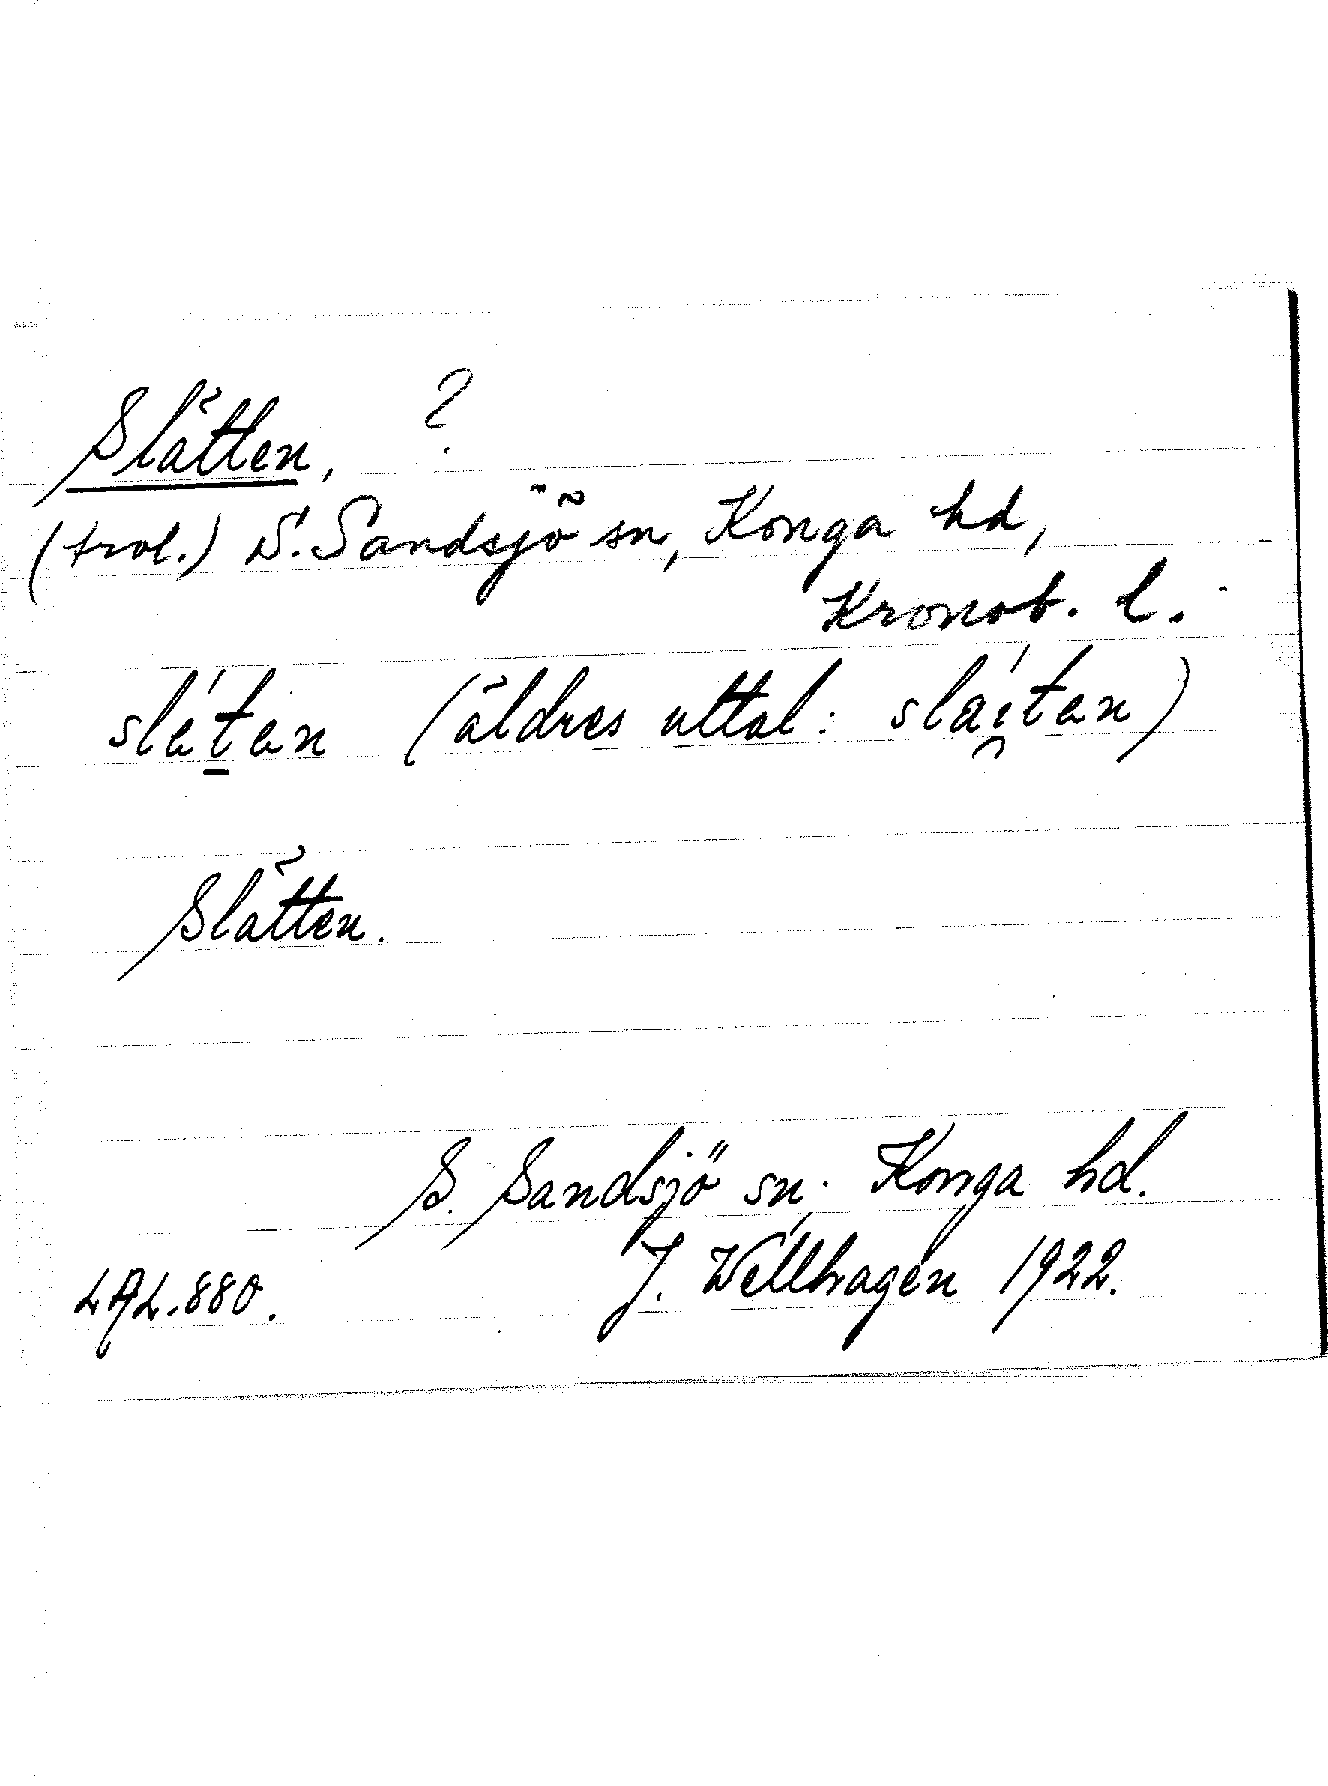 Slätten, ?
(trol.) S. Sandsjö sn, Konga hd,
Kronob. l.
slätan (äldres uttal: slaitan)
Slätten.
S. Sandsjö sn. Konga hd.
LAL.880. J. Wellhagen 1922.